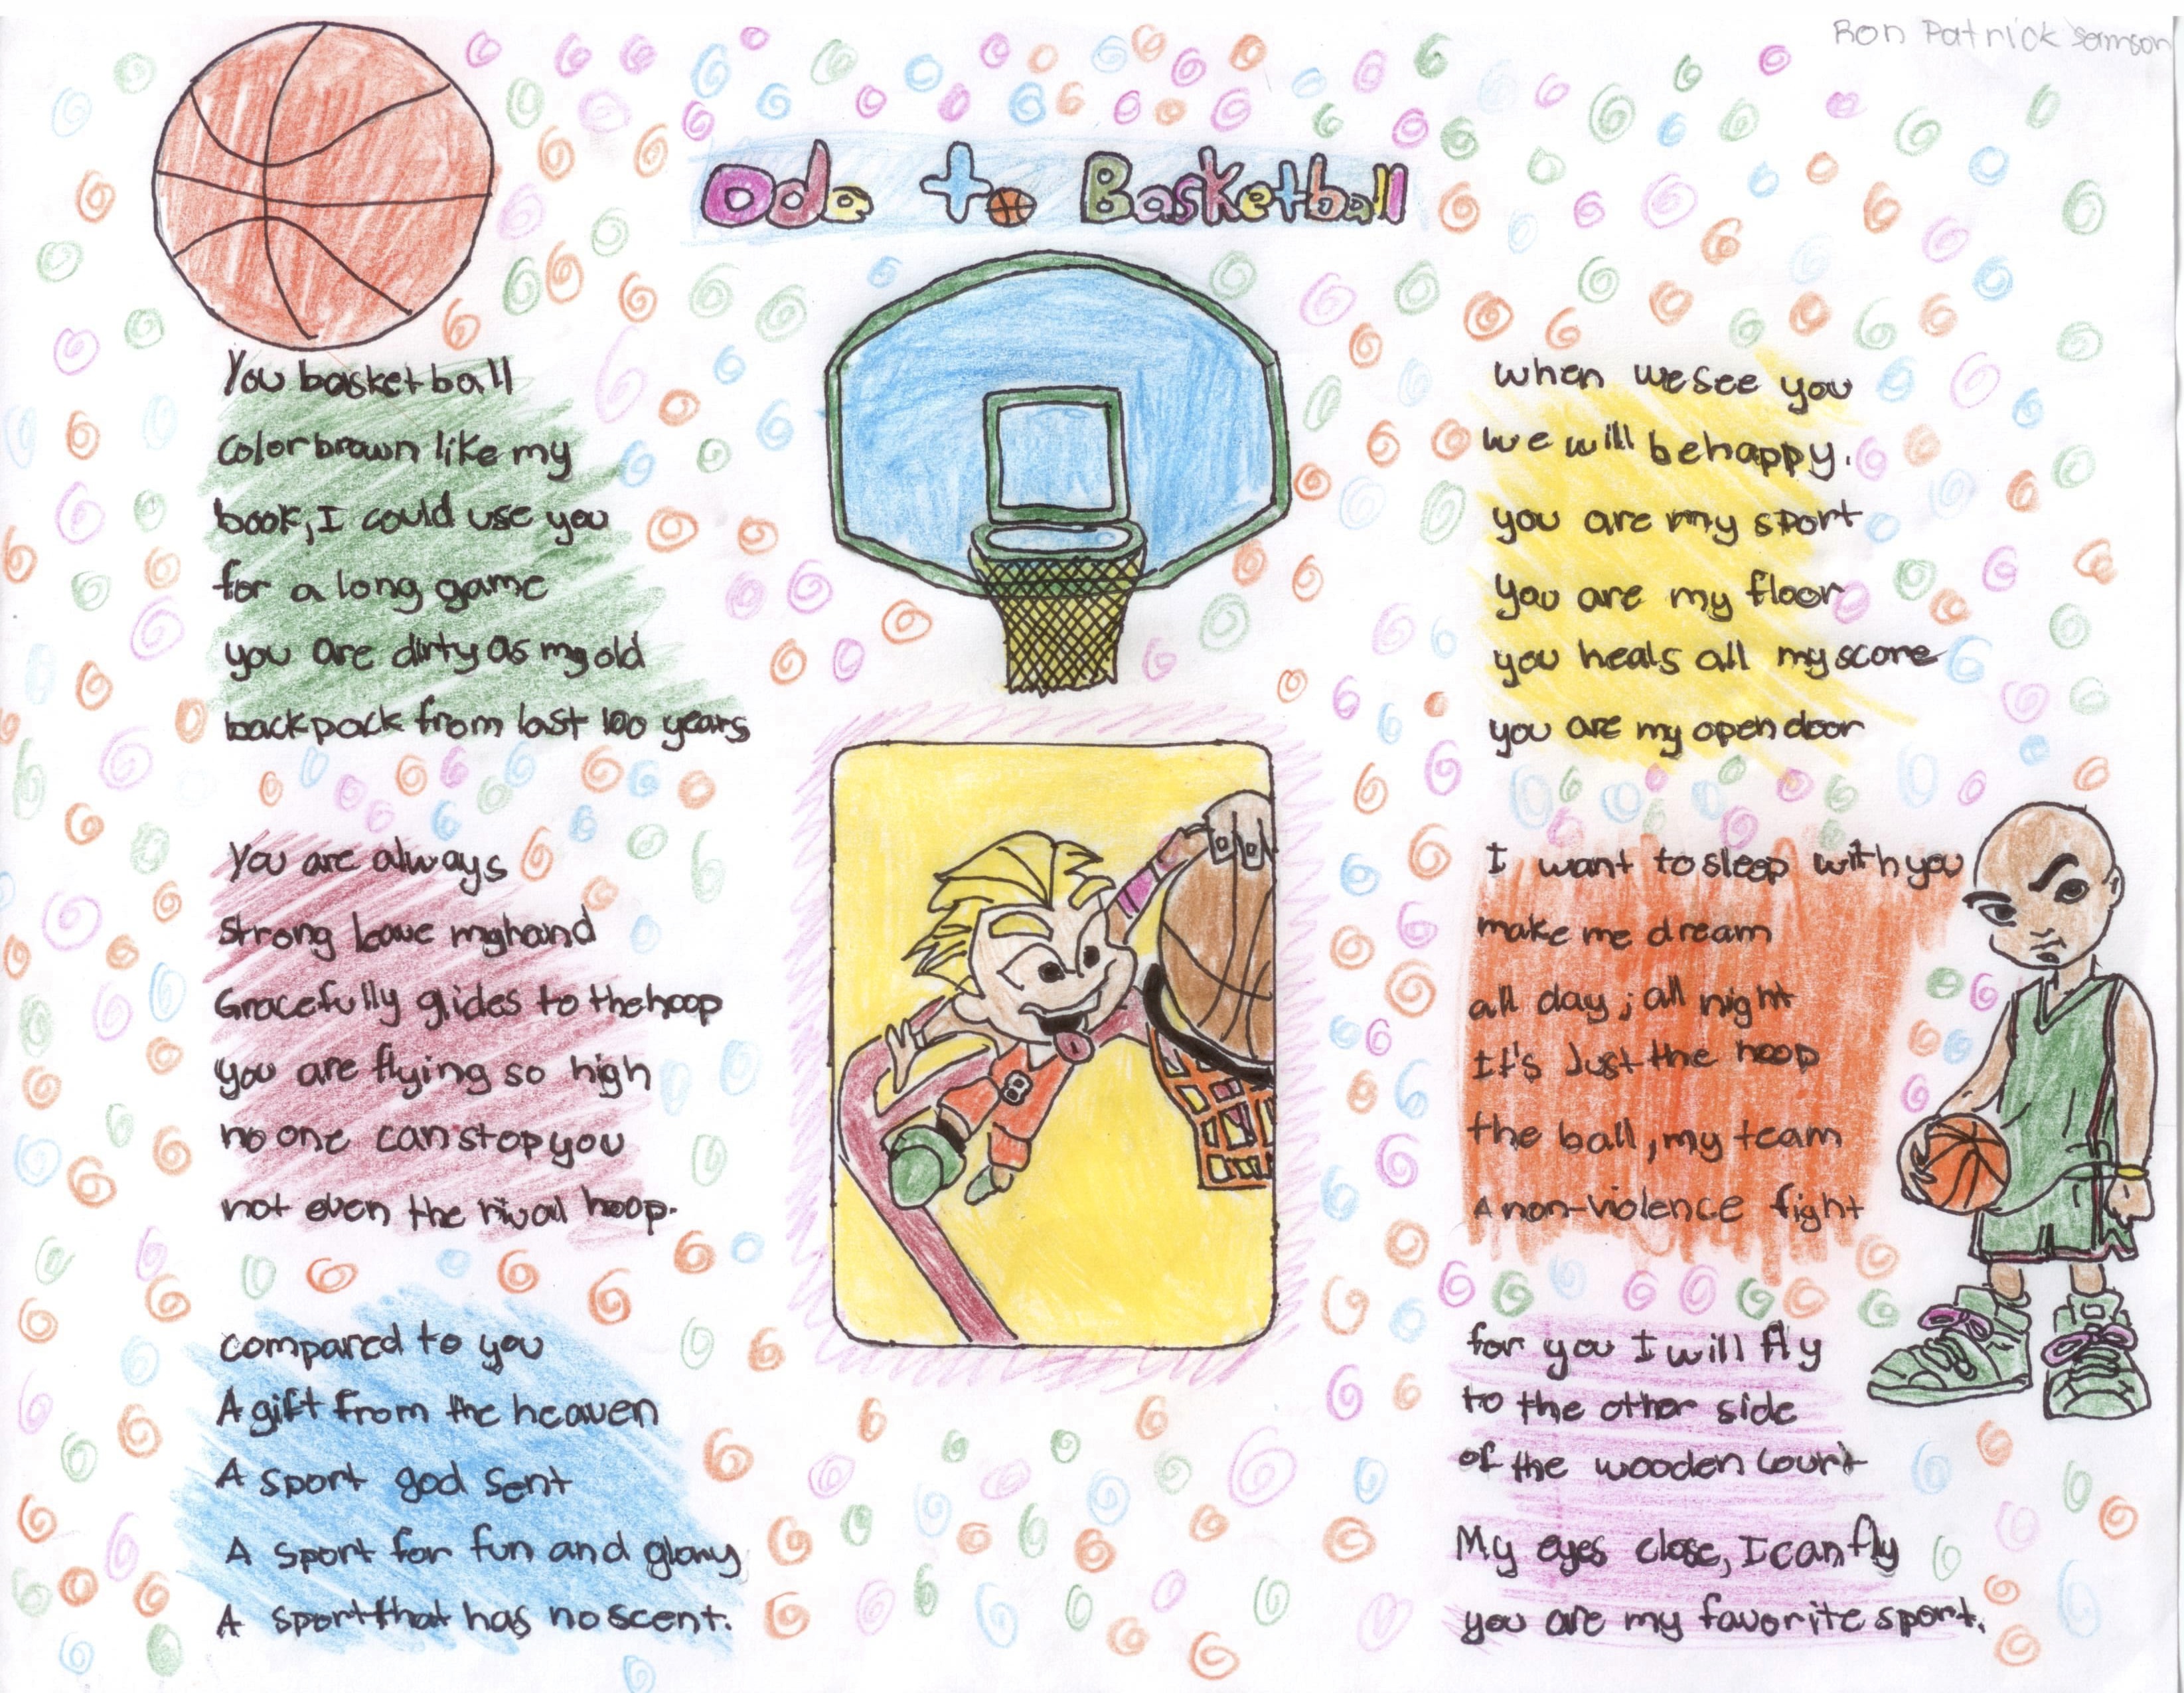 Ron Patrick Samson
Ode to Basketball
You basketball
color brown like my
book, I could use you
for a long game
you are dirty as my old
backpack from last 100 years
You are always
strong leave my hand
Gracefully glides to the hoop
you are flying so high
no one can stop you
not even the rival hoop.
compared to you
A gift from the heaven
A sport god sent
A sport for fun and glory
A sport that has no scent.
when we see you
we will be happy.
you are my sport
you are my floor
you heals all my score
you are my open door
I want to sleep with you
make me dream
all day, all night
It's Just the hoop
the ball, my team
A non-violence fight
for you I will fly
to the other side
of the wooden court
My eyes close, I can fly
you are my favorite sport.
8